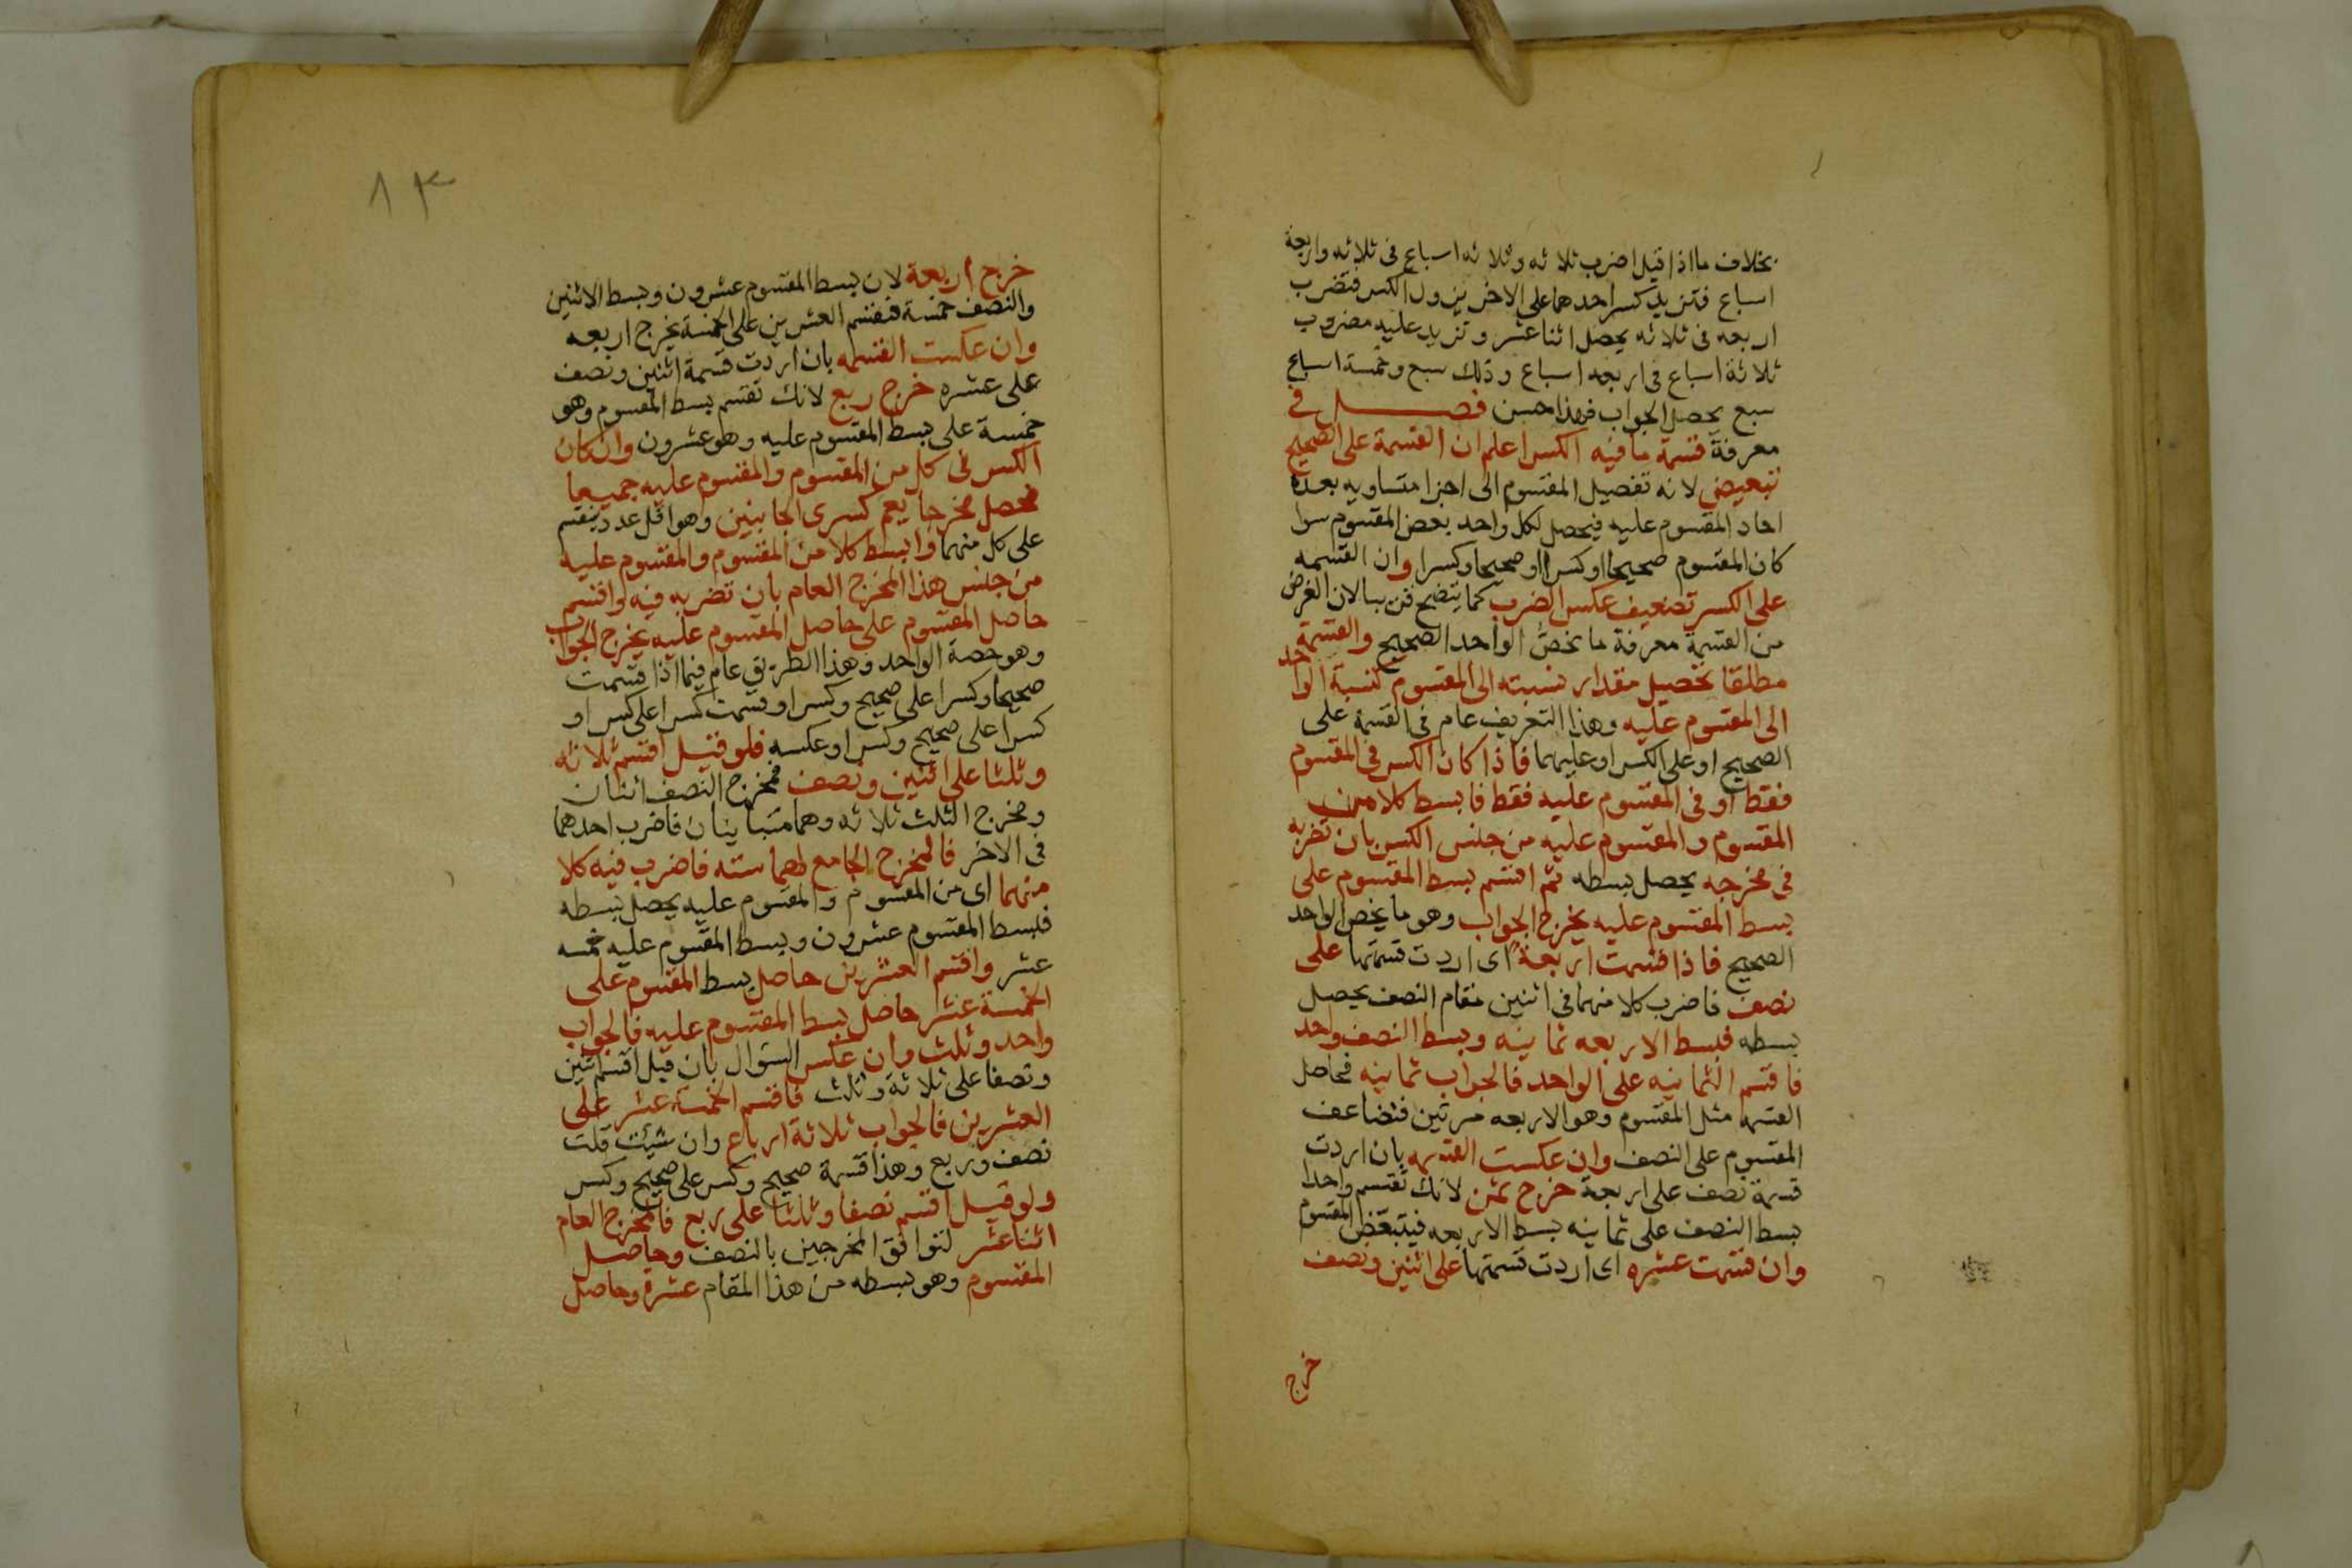 بخلاف ما اذا قيل اضرب ثلاثه وثلاثه اسباع فى ثلاثه واربعة
اسباع فتزيد كسر احدهما على الاخر يزول الكسر فتضرب
اربعه فى ثلاثه يحصل اثنا عشر وتزيد عليه مضروب
ثلاثة اسباع فى اربعه اسباع وذلك سبع وخمسة اسباع
سبع يحصل الجواب فهذا حسن فصل فى
معرفة قسمة ما فيه الكسر اعلم ان القسمة على الصحيح
تبعيض لانه تفصيل المقسوم الى اجزا متساويه بعدة
احاد المقسوم عليه فيحصل لكل واحد بعض المقسوم سوا
كان المقسوم صحيحا او كسرا او صحيحا وكسرا وان القسمه
على الكسر تضعيف عكس الضرب كما يتضح قريبا لان الغرض
من القسمة معرفة ما يخص الواحد الصحيح والقسمة
مطلقا تحصيل مقدار نسبته الى المقسوم كنسبة الواحد
الى المقسوم عليه وهذا التعريف عام فى القسمة على
الصحيح او على الكسر او عليهما فاذا كان الكسر فى المقسوم
فقط او فى المقسوم عليه فقط فابسط كلا من
المقسوم والمقسوم عليه من جنس الكسر بان تضربه
فى مخرجه يحصل بسطه ثم اقسم بسط المقسوم على
بسط المقسوم عليه يخرج الجواب وهو ما يخص الواحد
الصحيح فاذا قسمت اربعة اى اردت قسمتها على
نصف فاضرب كلا منهما فى اثنين مقام النصف يحصل
بسطه فبسط الاربعه ثمانيه وبسط النصف واحد
فاقسم الثمانيه على الواحد فالجواب ثمانيه فحاصل
القسمة مثل المقسوم وهو الاربعه مرتين فتضاعف
المقسوم على النصف وان عكست القسمه بان اردت
قسمة نصف على اربعة خرج ثمن لانك تقسم واحدا
بسط النصف على ثمانيه بسط الاربعه فيتبعض المقسوم
وان قسمت عشره اى اردت قسمتها على اثنين ونصف
خرج
٨٣
خرج اربعة لان بسط المقسوم عشرون وبسط الاثنين
والنصف خمسة فتقسم العشرين على الخمسة يخرج اربعه
وان عكست القسمه بان اردت قسمة اثنين ونصف
على عشره خرج ربع لانك تقسم بسط المقسوم وهو
خمسة على بسط المقسوم عليه وهو عشرون وان كان
الكسر فى كل من المقسوم والمقسوم عليه جميعا
فحصل مخرجا يعم كسرى الجانبين وهو اقل عدد ينقسم
على كل منهما وابسط كلا من المقسوم والمقسوم عليه
من جنس هذا المخرج العام بان تضربه فيه واقسم
حاصل المقسوم على حاصل المقسوم عليه يخرج الجواب
وهو حصة الواحد وهذا الطريق عام فيما اذا قسمت
صحيحا وكسرا على صحيح وكسر او قسمت كسرا على كسر او
كسرا على صحيح وكسر او عكسه فلو قيل اقسم ثلاثه
وثلثا على اثنين ونصف فمخرج النصف اثنان
ومخرج الثلث ثلاثه وهما متباينان فاضرب احدهما
فى الاخر فالمخرج الجامع لهما سته فاضرب فيه كلا
منهما اى من المقسوم والمقسوم عليه يحصل بسطه
فبسط المقسوم عشرون وبسط المقسوم عليه خمسه
عشر واقسم العشرين حاصل بسط المقسوم على
الخمسة عشر حاصل بسط المقسوم عليه فالجواب
واحد وثلث وان عكس السؤال بان قيل اقسم اثنين
ونصفا على ثلاثة وثلث فاقسم الخمسة عشر على
العشرين فالجواب ثلاثة ارباع وان شئت قلت
نصف وربع وهذا قسمة صحيح وكسر على صحيح وكسر
ولو قيل اقسم نصفا وثلثا على ربع فالمخرج العام
اثنا عشر لتوافق المخرجين بالنصف وحاصل
المقسوم وهو بسطه من هذا المقام عشرة وحاصل